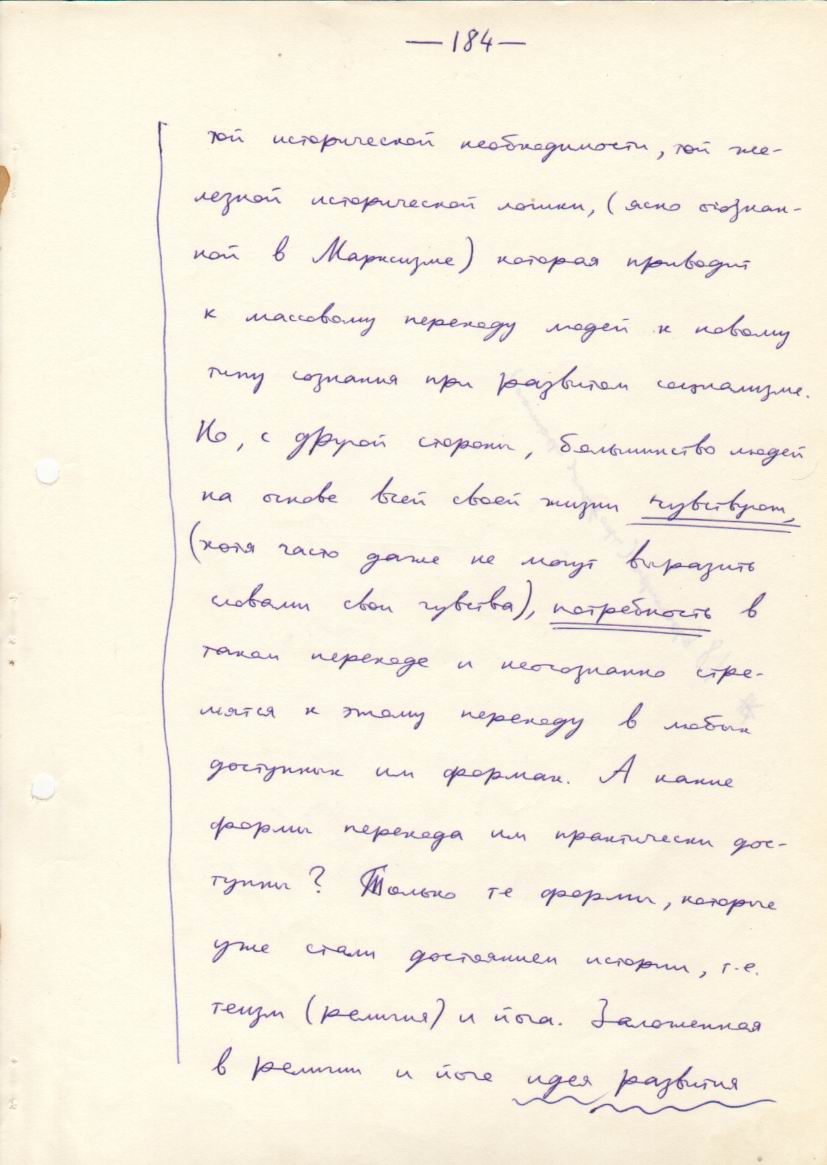 — 184 —
той исторической необходимости, той же-
лезной исторической логики, (ясно осознан-
ной в Марксизме) которая приводит
к массовому переходу людей к новому
типу сознания при развитом социализме.
Но, с другой стороны, большинство людей
на основе всей своей жизни чувствуют,
(хотя часто даже не могут выразить
словами свои чувства), потребность в
таком переходе и неосознанно стре-
мятся к этому переходу в любых
доступных им формах. А какие
формы перехода им практически дос-
тупны? Только те формы, которые
уже стали достоянием истории, т.е.
теизм (религия) и йога. Заложенная
в религии и йоге идея развития